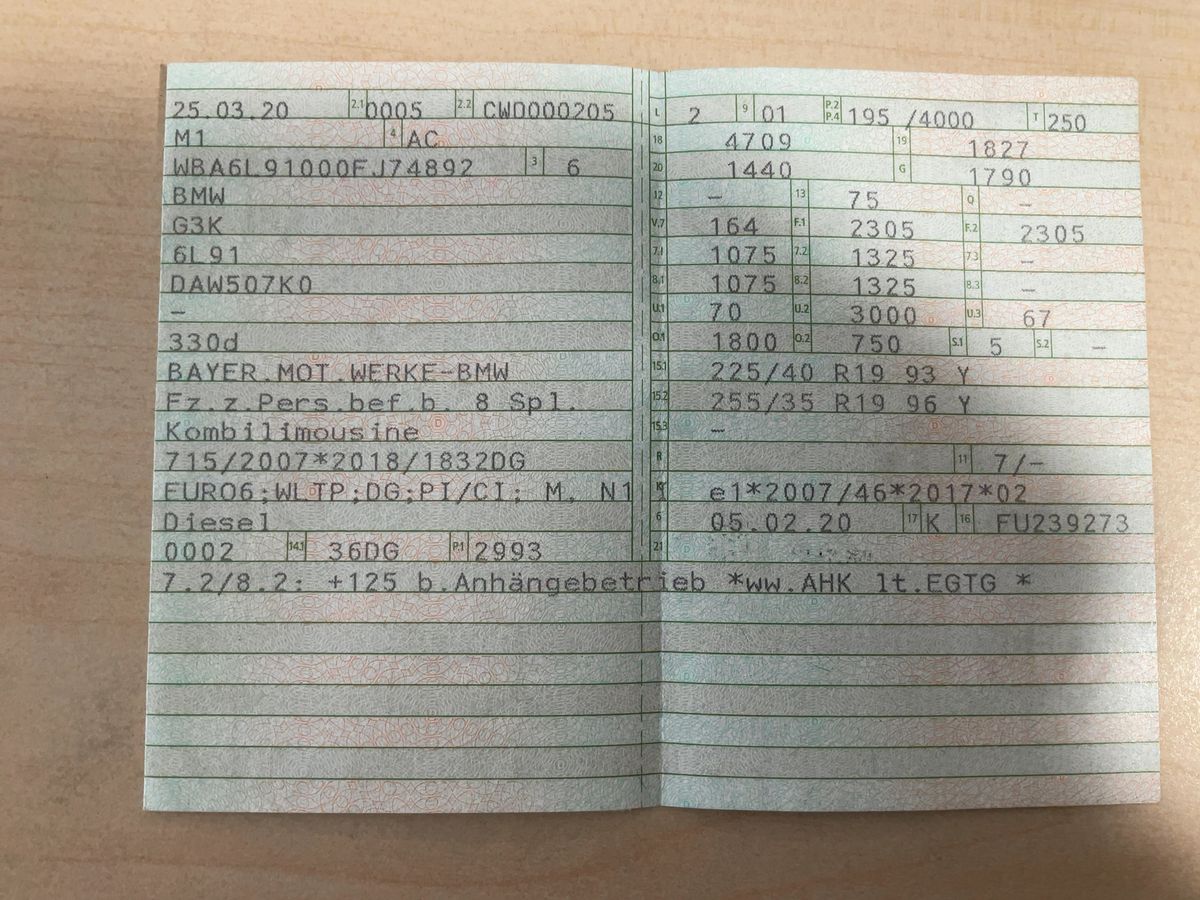 25.03.20 2.1 0005 2.2 CWD000205
M1 4 AC
WBA6L91000FJ74892 3 6
BMW
G3K
6L91
DAW507K0
–
330d
BAYER.MOT.WERKE-BMW
Fz.z.Pers.bef.b. 8 Spl.
Kombilimousine
715/2007*2018/1832DG
EURO6;WLTP;DG;PI/CI; M, N1
Diesel
0002 14.1 36DG P.1 2993
L 2 9 01 P.2 P.4 195 /4000 T 250
18 4709 19 1827
20 1440 G 1790
12 – 13 75 Q –
V.7 164 F.1 2305 F.2 2305
7.1 1075 7.2 1325 7.3 –
8.1 1075 8.2 1325 8.3 –
U.1 70 U.2 3000 U.3 67
O.1 1800 O.2 750 S.1 5 S.2 –
15.1 225/40 R19 93 Y
15.2 255/35 R19 96 Y
15.3 –
R 11 7/-
K e1*2007/46*2017*02
6 05.02.20 17 K 16 FU239273
21
7.2/8.2: +125 b.Anhängebetrieb *ww.AHK lt.EGTG *